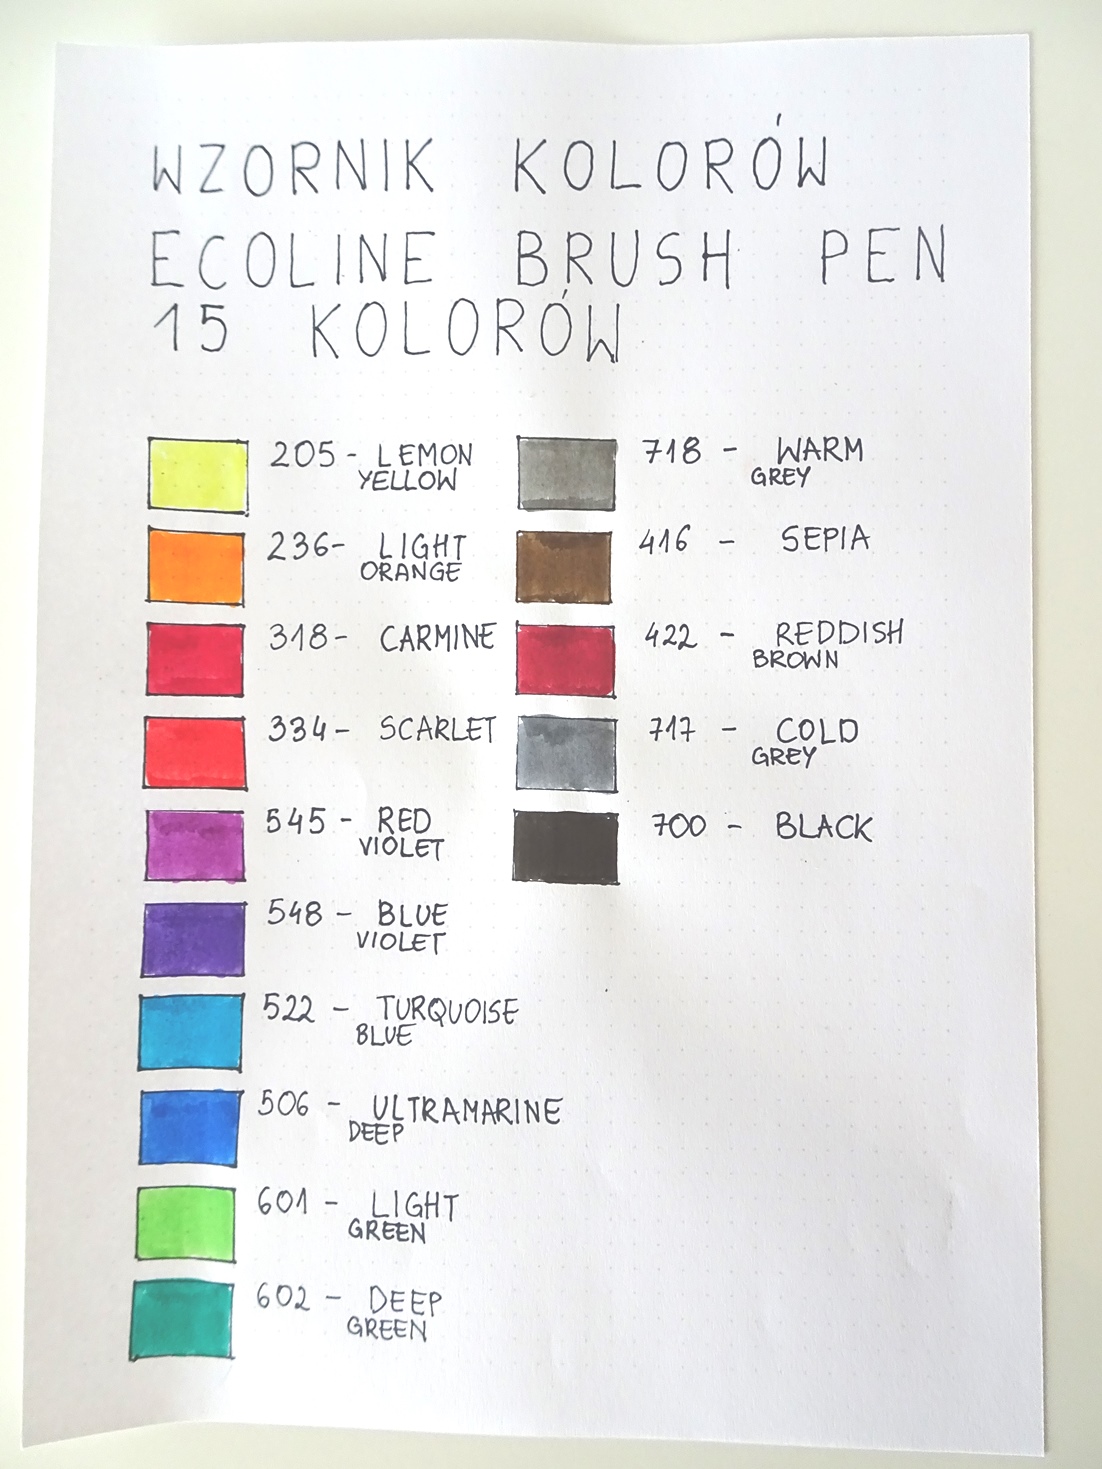 WZORNIK KOLORÓW
ECOLINE BRUSH PEN
15 KOLORÓW
205 - LEMON
YELLOW
236- LIGHT
ORANGE
318- CARMINE
334- SCARLET
545 - RED
VIOLET
548 - BLUE
VIOLET
522 - TURQUOISE
BLUE
506 - ULTRAMARINE
DEEP
601 - LIGHT
GREEN
602 - DEEP
GREEN
718 - WARM
GREY
416 - SEPIA
422 - REDDISH
BROWN
717 - COLD
GREY
700 - BLACK